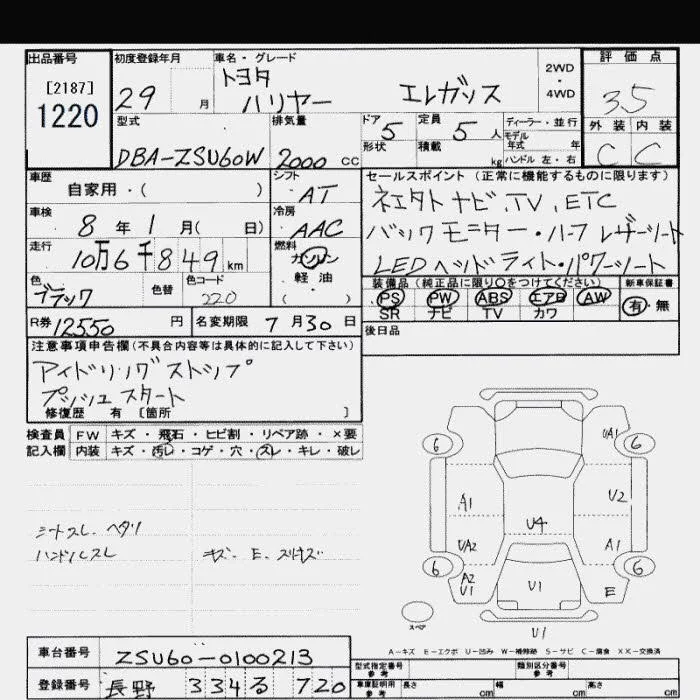 出品番号
[2187]
1220
初度登録年月
29 月
車名・グレード
トヨタ
ハリヤー エレガンス
2WD
・
4WD
評価点
3.5
外装 内装
C C
型式
DBA-ZSU60W
排気量
2000 cc
ドア 5
形状
定員 5 人
積載 kg
ディーラー・並行
モデル
年式 年
ハンドル 左・右
車歴
自家用・( )
シフト
AT
車検
8 年 1 月( 日)
冷房
AAC
走行
10万6千849 km
燃料
ガソリン
軽油
( )
色
ブラック
色替
色コード
220
R券 12550 円
名変期限 7月30日
セールスポイント(正常に機能するものに限ります)
ナビ.TV.ETC
バックモニター・ハーフレザーシート
LEDヘッドライト・パワーシート
装備品(純正品に限り○をつけてください)
PS PW ABS エアB AW
SR ナビ TV カワ
新車保証書
有・無
後日品
注意事項申告欄(不具合内容等は具体的に記入して下さい)
アイドリングストップ
プッシュスタート
修復歴 有〔箇所 〕
検査員 FW キズ・飛石・ヒビ割・リペア跡・×要
記入欄 内装 キズ・汚レ・コゲ・穴・スレ・キレ・破レ
シートスレ.ヘタリ
ハンドルスレ
キズ.E.スリキズ
UA1
6 6
A1 U2
U4
UA2 A1
6 6
A2
U1 U1 E
スペア
U1
A-キズ E-エクボ U-凹み W-補修跡 S-サビ C-腐食 XX-交換済
車台番号 ZSU60-0100213
登録番号 長野 334 る 720
型式指定番号
参考
類別区分番号
参考
車庫証明用
参考
長さ cm 幅 cm 高さ cm